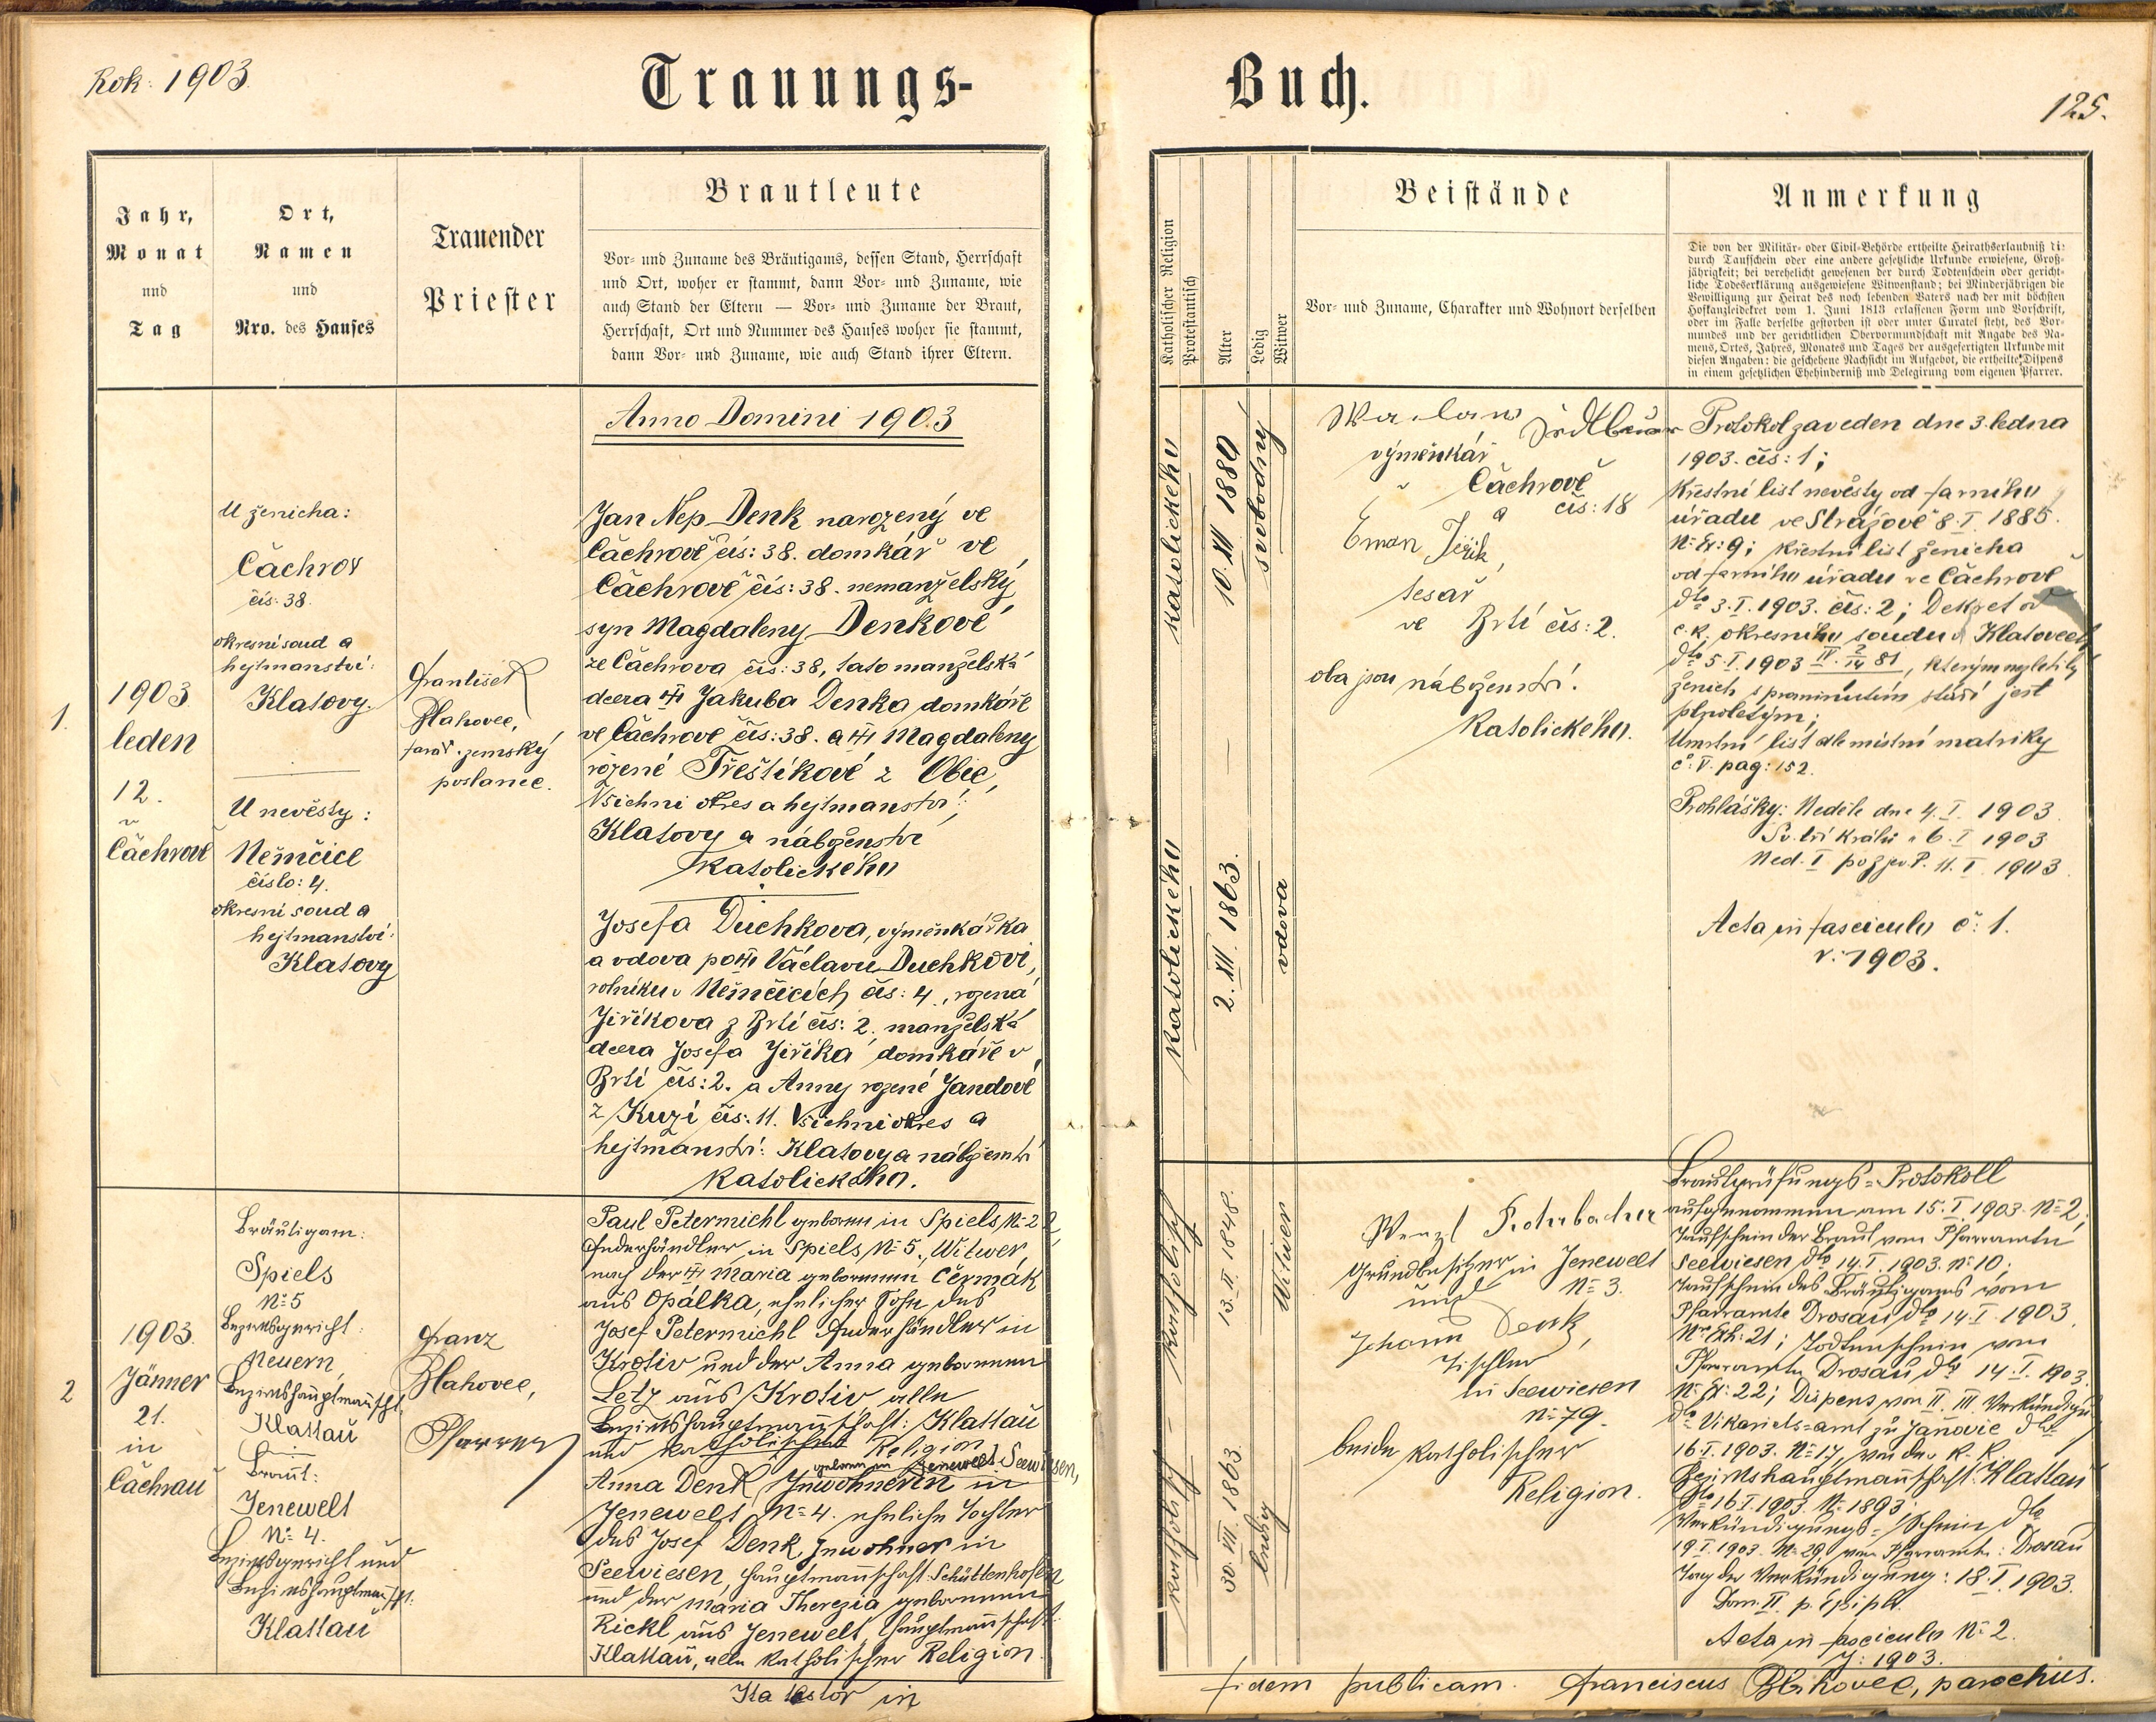 Rok: 1903.
Trauungs-
Buch.
125.
Jahr,
Monat
und
Tag
Ort,
Namen
und
Nro. des Hauses
Trauender
Priester
Brautleute
Vor- und Zuname des Bräutigams, dessen Stand, Herrschaft
und Ort, woher er stammt, dann Vor- und Zuname, wie
auch Stand der Eltern — Vor- und Zuname der Braut,
Herrschaft, Ort und Nummer des Hauses woher sie stammt,
dann Vor- und Zuname, wie auch Stand ihrer Eltern.
Katholischer Religion
Protestantisch
Alter
Ledig
Witwer
Beistände
Vor- und Zuname, Charakter und Wohnort derselben
Anmerkung
Die von der Militär- oder Civil-Behörde ertheilte Heirathserlaubniß di:
durch Taufschein oder eine andere gesetzliche Urkunde erwiesene, Groß-
jährigkeit; bei verehelicht gewesenen der durch Todtenschein oder gericht-
liche Todeserklärung ausgewiesene Witwenstand; bei Minderjährigen die
Bewilligung zur Heirat des noch lebenden Vaters nach der mit höchsten
Hofkanzleidekret vom 1. Juni 1813 erlassenen Form und Vorschrift,
oder im Falle derselbe gestorben ist oder unter Curatel steht, des Vor-
mundes und der gerichtlichen Obervormundschaft mit Angabe des Na-
mens, Ortes, Jahres, Monates und Tages der ausgefertigten Urkunde mit
diesen Angaben: die geschehene Nachsicht im Aufgebot, die ertheilte Dispens
in einem gesetzlichen Ehehinderniß und Delegirung vom eigenen Pfarrer.
Anno Domini 1903
1.
1903
leden
12.
v
Čachrově
U ženicha:
Čachrov
čís: 38.
okresní soud a
hejtmanství:
Klatovy.
U nevěsty:
Němčice
číslo: 4.
okresní soud a
hejtmanství:
Klatovy
František
Blahovec,
farář. zemský
poslanec.
Jan Nep. Denk narozený ve
Čachrově čís: 38. domkář ve
Čachrově čís: 38. nemanželský
syn Magdaleny Denkové
ze Čachrova čís: 38, tato manželská
dcera Jakuba Denka domkáře
ve Čachrově čís: 38. a Magdaleny
rozené Třeštíkové z Obic,
Všichni okres a hejtmanství:
Klatovy a náboženství
katolického
Josefa Duchkova, výměnkářka
a vdova po Václavu Duchkovi,
rolníku v Němčicích čís: 4., rozená
Jiříkova z Brtí čís: 2. manželská
dcera Josefa Jiříka domkáře v
Brtí čís: 2. a Anny rozené Jandové
z Kuzí čís: 11. Všichni okres a
hejtmanství: Klatovy a náboženství
katolického.
katolického
10. XII 1880
svobodný
katolického
2. XII. 1863.
vdova
výměnkář
v Čachrově
čís: 18
a
Eman Jiřík,
tesař
ve Brtí čís: 2.
oba jsou náboženství.
katolického.
Protokol zaveden dne 3. ledna
1903. čís: 1;
Křestní list nevěsty od farního
úřadu ve Strážově 8. I. 1885.
N: Ex: 9; křestní list ženicha
od farního úřadu ve Čachrově
dto 3. I. 1903. čís: 2; Dekret od
c. k. okresního soudu v Klatovech
dto 5. I. 1903
ženich s prominutím stáří jest
plnoletým;
Úmrtní list dle místní matriky
č: V. pag: 152.
Prohlášky: Neděle dne 4. I. 1903.
Sv. tří Králů 6. I 1903
Ned. I po Zjev. P. 11. I. 1903.
Acta in fasciculo č: 1.
r: 1903.
2
1903.
Jänner
21.
in
Čachrau
Bräutigam:
Spiels
No 5
Bezirksgericht:
Neuern,
Bezirkshauptmanschft.
Klattau
Braut:
Jenewelt
No 4.
Bezirksgericht und
Bezirkshauptmanschft.
Klattau
Franz
Blahovec,
Pfarrer
Paul Petermichl geboren in Spiels No 22,
Federhändler in Spiels No 5., Witwer,
nach der Maria geborenen Čermák
aus Opálka, ehelicher Sohn des
Josef Petermichl Federhändler in
Krotiv und der Anna geborenen
Letz aus Krotiv alle
Bezirkshauptmannschaft: Klattau
und katholischer Religion
geboren in Jenewelt Seewiesen,
Anna Denk Inwohnerin in
Jenewelt No 4. eheliche Tochter
des Josef Denk Inwohner in
Seewiesen, Hauptmannschaft: Schüttenhofen
und der Maria Therezia geborenen
Rickl aus Jenewelt, Hauptmannschaft:
Klattau, alle katholischer Religion.
katholisch
13. II 1848.
Witwer
katholisch
30. VII. 1863.
ledig
Wenzl Rohrbacher
Grundbesitzer in Jenewelt
No 3.
und
Johann Denk,
Tischler
in Seewiesen
No 79.
beide katholischer
Religion.
Brautprüfungs-Protokoll
aufgenommen am 15. I 1903. No 2;
Taufschein der Braut vom Pfarramte
Seewiesen dto 14. I. 1903. No 10;
Taufschein des Bräutigams vom
Pfarramte Drosau dto 14. I. 1903.
No Exh: 21; Todtenschein vom
Pfarramte Drosau dto 14. I. 1903.
No Ex: 22; Dispens von II. III Verkündig:
dto Vikariats-amt zu Janovic dto
16. I. 1903. No 17, von der k. k.
Bezirkshauptmanschaft: Klattau
dto 16. I. 1903. No 1893;
Verkündigungs-Schein dto
19. I. 1903. No 29, vom Pfarramte: Drosau
Tag der Verkündigung: 18. I. 1903.
Dom. II. p. Epiph.
Acta in fasciculo No 2.
J: 1903.
Ita testor in
fidem publicam. Franciscus Blahovec, parochus.